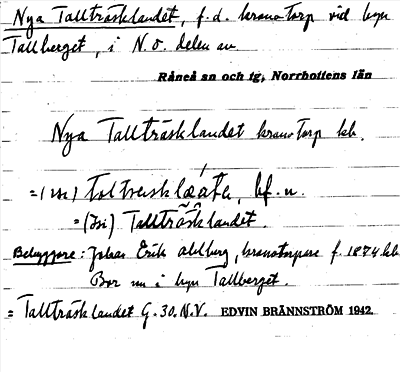 Nya Tallträsklandet, f.d. kronotorp vid byn
Tallberget, i N.O. delen av
Råneå sn och tg, Norrbottens län
Nya Tallträsklandet kronotorp kb.
=(isi) Tallträsklandet.
Bebyggare: Johan Erik Ahlberg, kronotorpare f. 1874 kb
Bor nu i byn Tallberget.
= Tallträsklandet G. 30. N.V. EDVIN BRÄNNSTRÖM 1942.